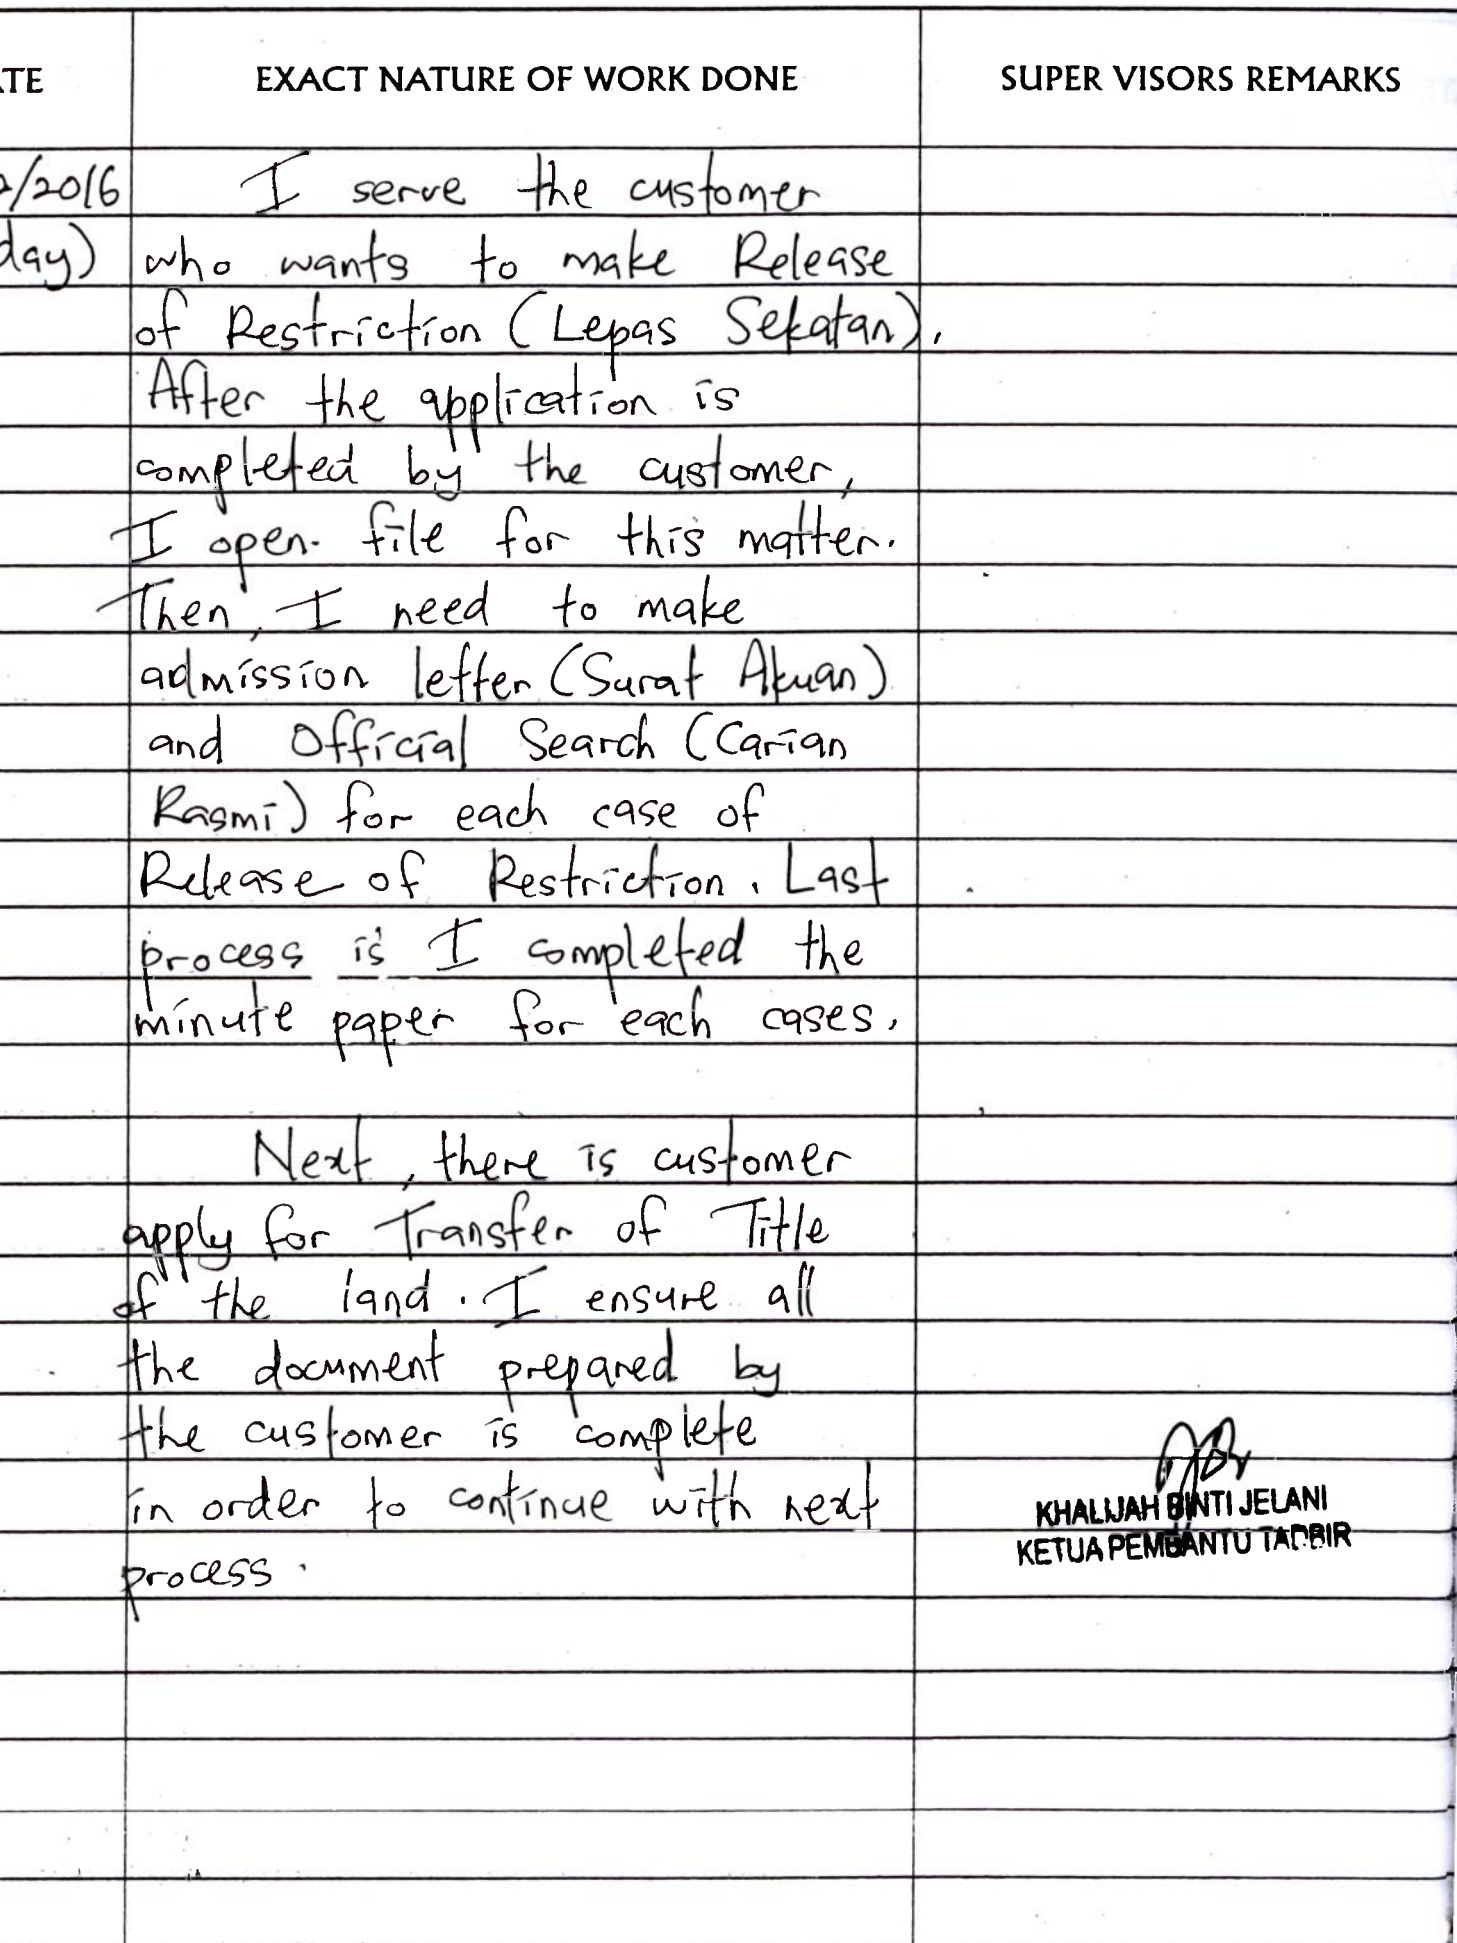 ATE EXACT NATURE OF WORK DONE SUPER VISORS REMARKS
2/2016 I serve the customer
day) who wants to make Release
of Restriction (Lepas Sekatan).
After the application is
completed by the customer,
I open. file for this matter.
Then, I need to make
admission letter (Surat Akuan)
and Official Search (Carian
Rasmi) for each case of
Release of Restriction. Last
process is I completed the
minute paper for each cases.
Next, there is customer
apply for Transfer of Title
of the land. I ensure all
the document prepared by
the customer is complete
in order to continue with next
process.
KHALIJAH BINTI JELANI
KETUA PEMBANTU TADBIR